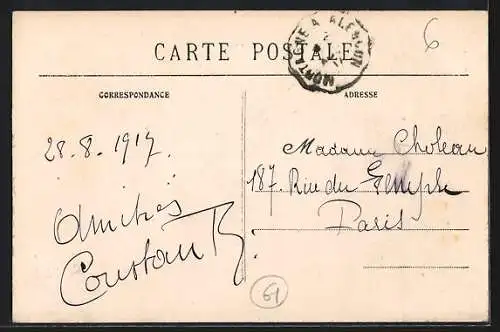 6
MORTAGNE A ALENÇON
CARTE POSTALE
CORRESPONDANCE
ADRESSE
28.8.1917.
Amitiés
Constant
Madame Choleau
187. Rue du Temple
Paris
61